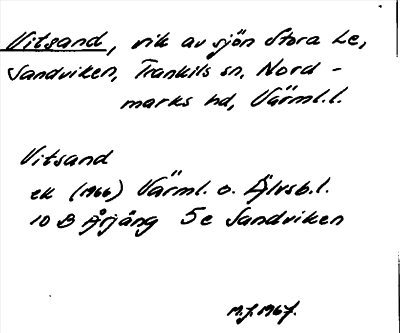 Vitsand, vik av sjön Stora Le,
Sandviken, Trankils sn, Nord-
marks hd, Värml.l.
Vitsand
ek (1966) Värml. o. Älvsb.l.
10 B Årjäng 5c Sandviken
M.J. 1967.